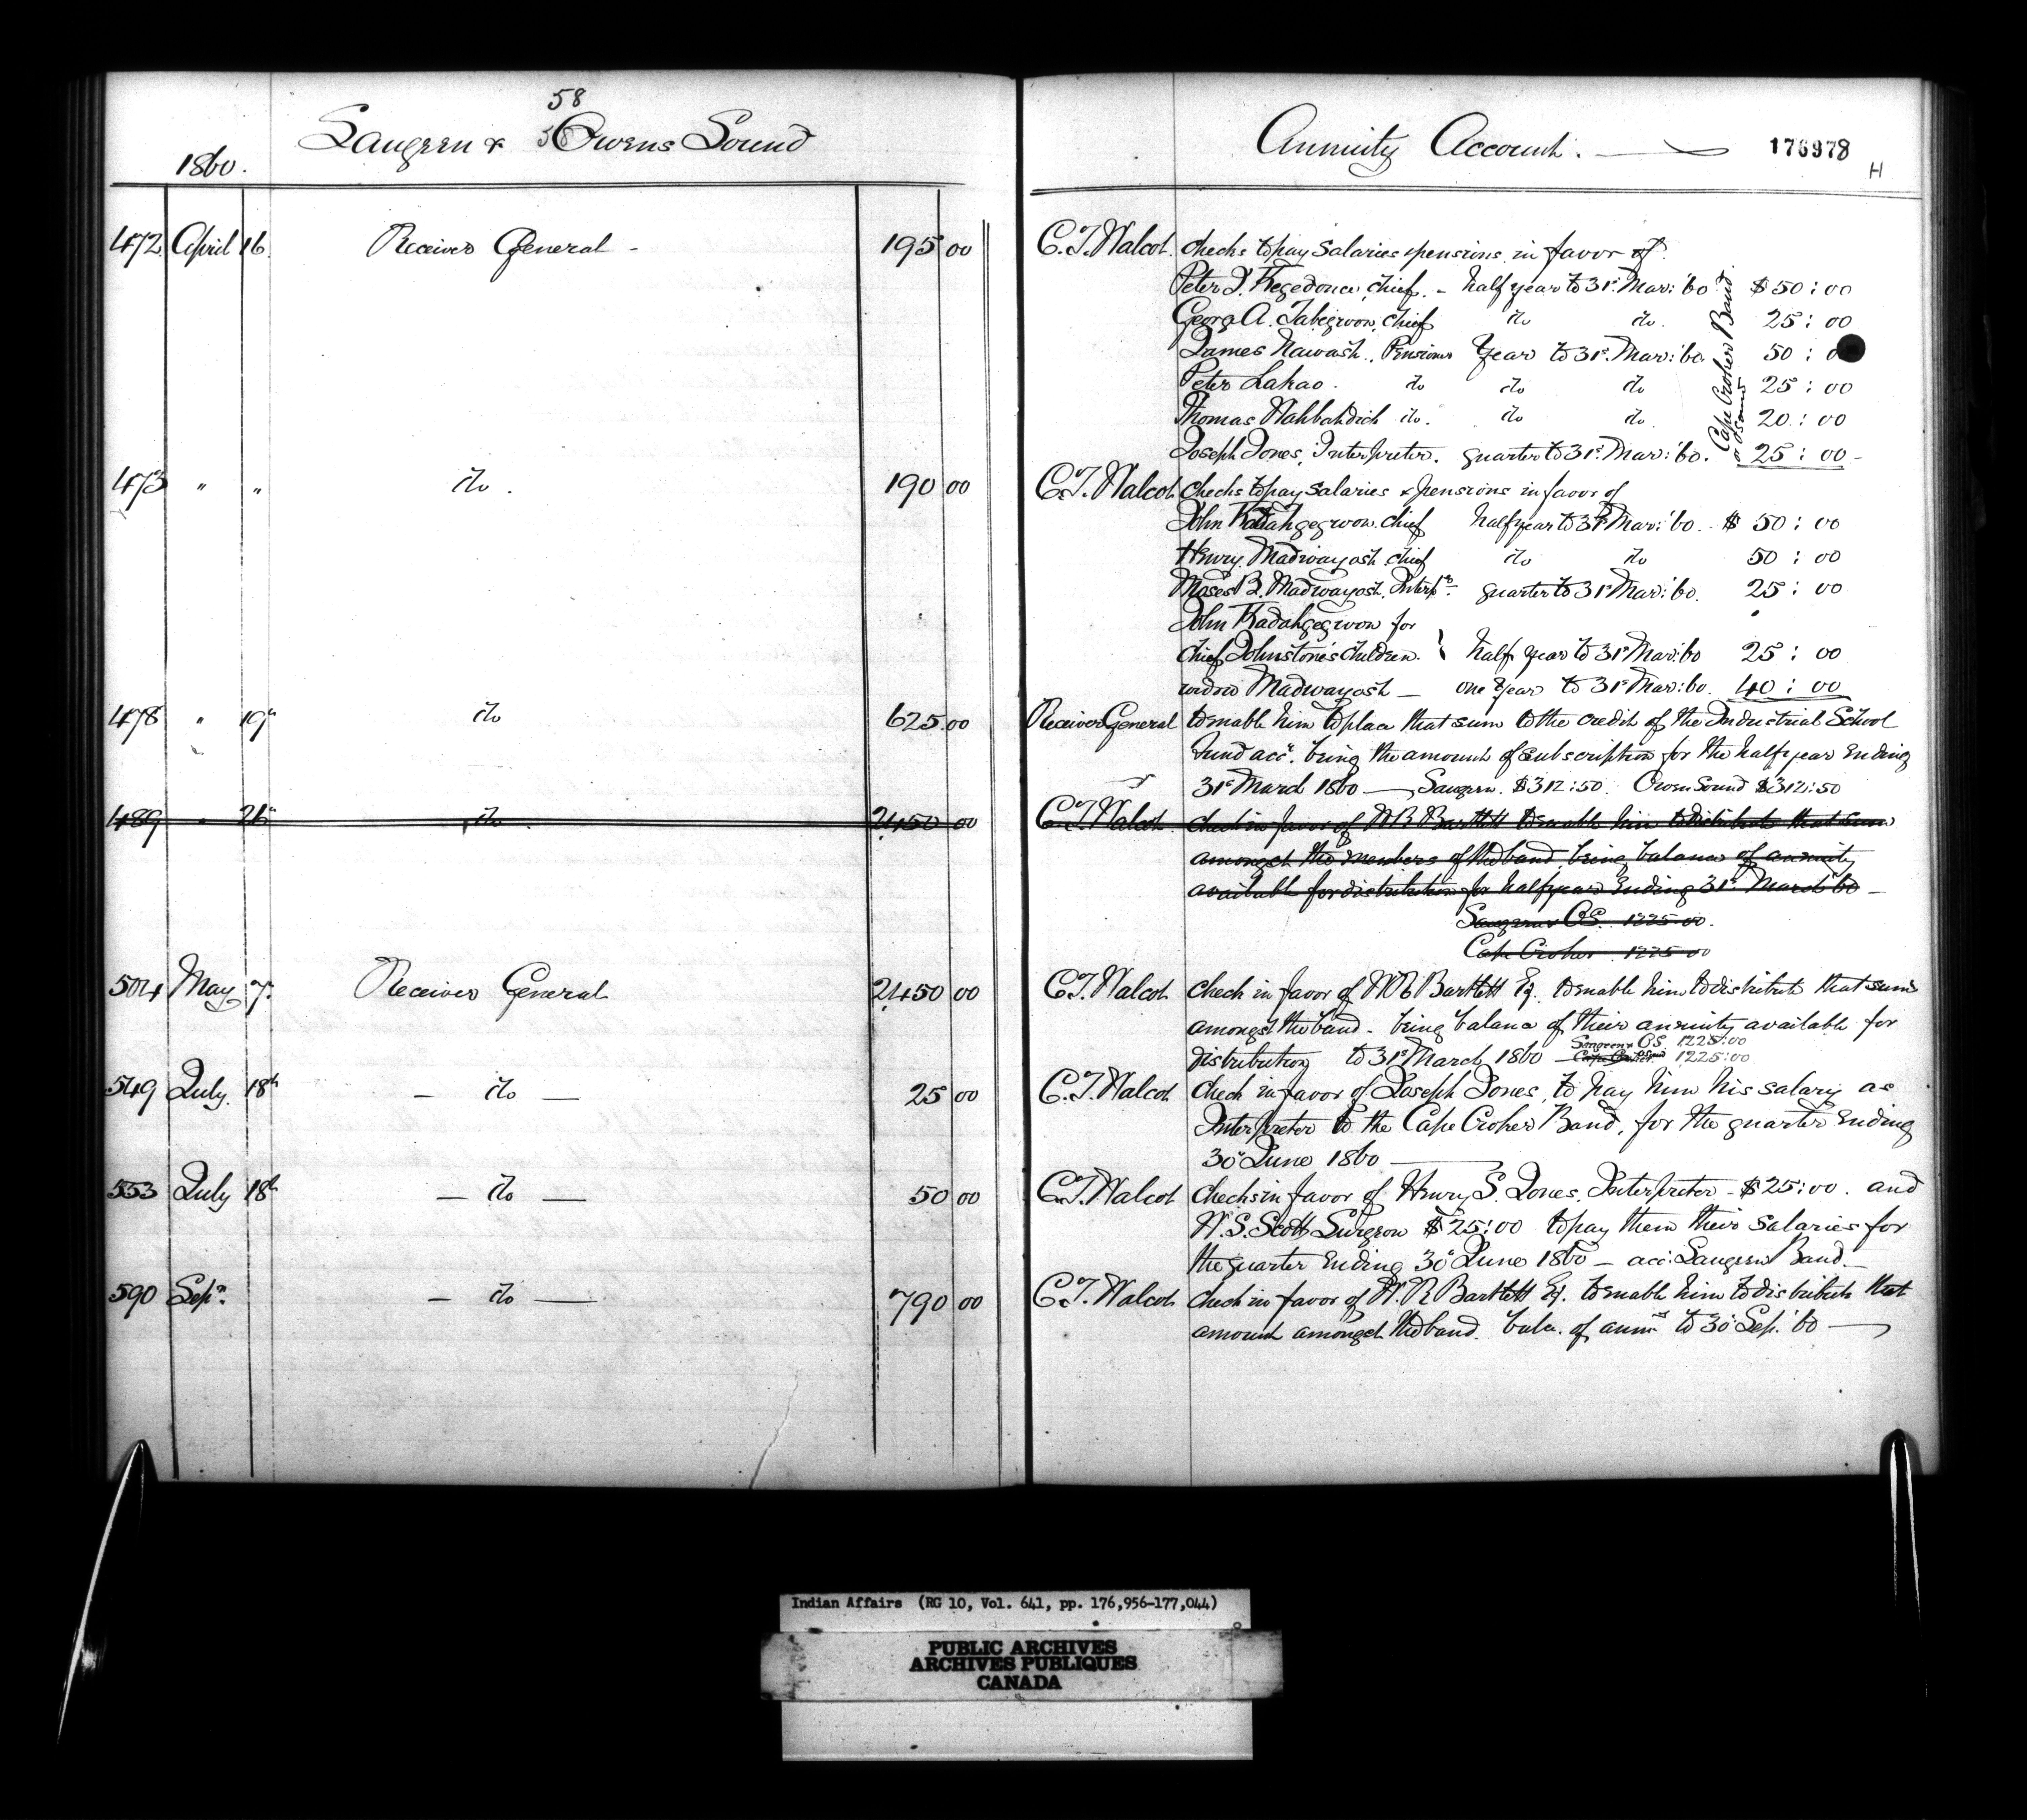 58
Saugeen & Owens Sound
1860.
Annuity Account.
176978
H
472 April 16. Receiver General - 195 00 C. T. Walcot. checks to pay salaries & pensions in favor of
Peter J. Kegedonce, chief. - half year to 31st. Mar: '60 $50:00
George A. Tabegwon, chief do do. 25:00
James Nawash, Pensioner Year to 31st. Mar: '60. 50:0
Peter Lahao. do do do 25:00
Thomas Wahbahdich do. do do. 20:00
Joseph Jones, Interpreter. quarter to 31st. Mar: '60. 25:00 -
Cape Croker Band
473 " " do. 190 00 C. T. Walcot checks to pay salaries & pensions in favor of
John Kadahgegwon. chief half year to 31st Mar: '60. $ 50:00
Henry Madwayosh. chief do do 50:00
Moses B. Madwayosh. Interpr. quarter to 31st Mar: '60. 25:00
John Kadahgegwon for
chief Johnstone's children. } half year to 31st Mar: 60 25:00
widow Madwayosh — one year to 31st Mar: 60. 40:00
478 " 19th do 625.00 Receiver General to enable him to place that sum to the credit of the Industrial School
Fund acct. being the amount of subscription for the half year ending
31st March 1860 — Saugeen. $312:50. Owen Sound $312:50
489 " 21st do. 2450 00 C. T. Walcot check in favor of W R Bartlett to enable him to distribute that sum
amongst the members of the band, being balance of annuity
available for distribution for half year ending 31st March '60 -
Saugeen & OS. 1225.00.
Cape Croker 1225.00
504 May 7. Receiver General 2450 00 C. T. Walcot check in favor of W R Bartlett Eq. to enable him to distribute that sum
amongst the band - being balance of their annuity available for
distribution to 31st March 1860 — Saugeen & OS. 1225:00
Cape Croker 1225:00
549 July 18th — do — 25 00 C. T. Walcot check in favor of Joseph Jones, to pay him his salary as
Interpreter to the Cape Croker Band, for the quarter ending
30th June 1860 ———
553 July 18th — do — 50 00 C. T. Walcot checks in favor of Henry S. Jones, Interpreter - $25:00. and
W. S. Scott Surgeon $25:00 to pay them their salaries for
the quarter ending 30th June 1860 — acc: Saugeen Band —
590 Sepr. — do — 790 00 C. T. Walcot check in favor of W. R Bartlett Eq. to enable him to distribute that
amount amongst the band. bala. of annuity to 30th Sep. '60 —
Indian Affairs (RG 10, Vol. 641, pp. 176,956-177,044)
PUBLIC ARCHIVES
ARCHIVES PUBLIQUES
CANADA